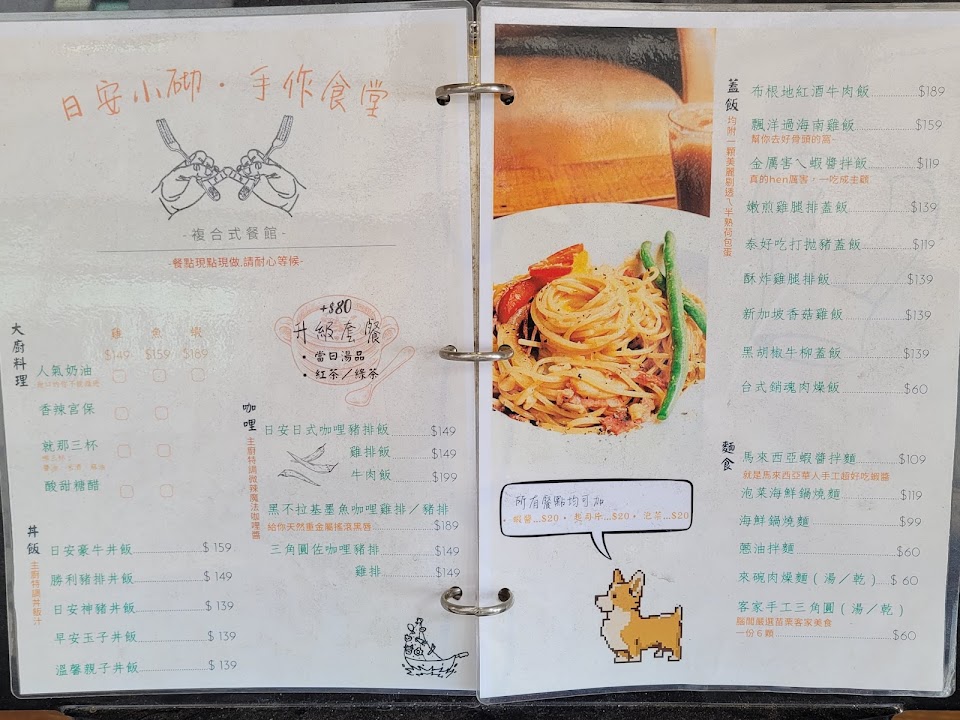 日安小砌・手作食堂
-複合式餐館-
-餐點現點現做,請耐心等候-
+$80
升級套餐
• 當日湯品
• 紅茶／綠茶
大廚料理
雞 魚 蝦
$149 $159 $189
人氣奶油
香辣宮保
就那三杯
酸甜糖醋
丼飯
主廚特調丼飯汁
日安豪牛丼飯 $ 159
勝利豬排丼飯 $ 149
日安神豬丼飯 $ 139
早安玉子丼飯 $ 139
溫馨親子丼飯 $ 139
咖哩
主廚特調微辣魔法咖哩醬
日安日式咖哩豬排飯 $149
雞排飯 $149
牛肉飯 $199
黑不拉基墨魚咖哩雞排／豬排
給你天然重金屬搖滾黑唇 $189
三角圓佐咖哩豬排 $149
雞排 $149
蓋飯
均附一顆美麗剔透ㄟ半熟荷包蛋
布根地紅酒牛肉飯 $189
飄洋過海南雞飯 $159
幫你去好骨頭的窩~
金厲害ㄟ蝦醬拌飯 $119
真的hen厲害，一吃成主顧
嫩煎雞腿排蓋飯 $139
泰好吃打拋豬蓋飯 $119
酥炸雞腿排飯 $139
新加坡香菇雞飯 $139
黑胡椒牛柳蓋飯 $139
台式銷魂肉燥飯 $60
麵食
馬來西亞蝦醬拌麵 $109
就是馬來西亞華人手工超好吃蝦醬
泡菜海鮮鍋燒麵 $119
海鮮鍋燒麵 $99
蔥油拌麵 $60
來碗肉燥麵 ( 湯／乾 ) $ 60
客家手工三角圓 ( 湯／乾 )
腦闆嚴選苗栗客家美食
一份６顆 $60
所有餐點均可加
• 蝦醬...$20 • 起司片...$20 • 泡菜...$20